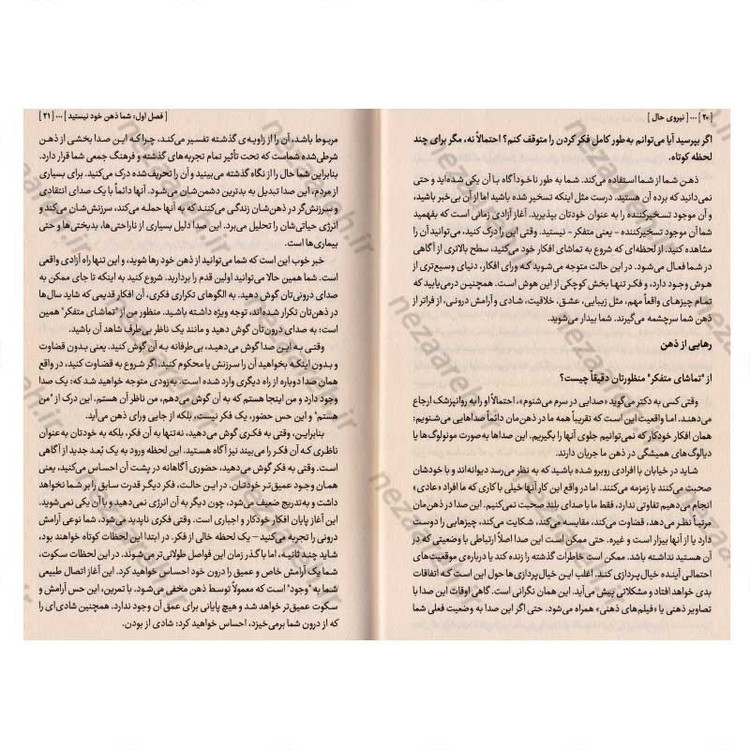 [۲۰] ... [ نیروی حال ]
اگر بپرسید آیا می‌توانم به‌طور کامل فکر کردن را متوقف کنم؟ احتمالاً نه، مگر برای چند
لحظه کوتاه.
ذهن شما از شما استفاده می‌کند. شما به طور ناخودآگاه با آن یکی شده‌اید و حتی
نمی‌دانید که برده آن هستید. درست مثل اینکه تسخیر شده باشید اما از آن بی‌خبر باشید،
و آن موجود تسخیرکننده را به عنوان خودتان بپذیرید. آغاز آزادی زمانی است که بفهمید
شما آن موجود تسخیرکننده – یعنی متفکر – نیستید. وقتی این را درک کنید، می‌توانید آن را
مشاهده کنید. از لحظه‌ای که شروع به تماشای افکار خود می‌کنید، سطح بالاتری از آگاهی
در شما فعال می‌شود. در این حالت متوجه می‌شوید که ورای افکار، دنیای وسیع‌تری از
هوش وجود دارد، و فکر تنها بخش کوچکی از این هوش است. همچنین درمی‌یابید که
تمام چیزهای واقعاً مهم، مثل زیبایی، عشق، خلاقیت، شادی و آرامش درونی، از فراتر از
ذهن شما سرچشمه می‌گیرند. شما بیدار می‌شوید.
رهایی از ذهن
از "تماشای متفکر" منظورتان دقیقاً چیست؟
وقتی کسی به دکتر می‌گوید «صدایی در سرم می‌شنوم»، احتمالاً او را به روانپزشک ارجاع
می‌دهند. اما واقعیت این است که تقریباً همه ما در ذهن‌مان دائماً صداهایی می‌شنویم:
همان افکار خودکار که نمی‌توانیم جلوی آنها را بگیریم. این صداها به‌صورت مونولوگ‌ها یا
دیالوگ‌های همیشگی در ذهن ما جریان دارند.
شاید در خیابان با افرادی روبرو شده باشید که به نظر می‌رسد دیوانه‌اند و با خودشان
صحبت می‌کنند یا زمزمه می‌کنند. اما در واقع این کار آنها خیلی با کاری که ما افراد «عادی»
انجام می‌دهیم تفاوتی ندارد، فقط ما با صدای بلند صحبت نمی‌کنیم. این صدا در ذهن‌مان
مرتباً نظر می‌دهد، قضاوت می‌کند، مقایسه می‌کند، شکایت می‌کند، چیزهایی را دوست
دارد یا از آنها بیزار است و غیره. حتی ممکن است این صدا اصلاً ارتباطی با وضعیتی که در
آن هستید نداشته باشد. ممکن است خاطرات گذشته را زنده کند یا درباره‌ی موقعیت‌های
احتمالی آینده خیال‌پردازی کند. اغلب این خیال‌پردازی‌ها حول این است که اتفاقات
بدی خواهد افتاد و مشکلاتی پیش می‌آید. این همان نگرانی است. گاهی اوقات این صدا با
تصاویر ذهنی یا «فیلم‌های ذهنی» همراه می‌شود. حتی اگر این صدا به وضعیت فعلی شما
[ فصل اول: شما ذهن خود نیستید ] ... [۲۱]
مربوط باشد، آن را از زاویه‌ی گذشته تفسیر می‌کند، چرا که این صدا بخشی از ذهن
شرطی‌شده شماست که تحت تأثیر تمام تجربه‌های گذشته و فرهنگ جمعی شما قرار دارد.
بنابراین شما حال را از نگاه گذشته می‌بینید و آن را تحریف‌شده درک می‌کنید. برای بسیاری
از مردم، این صدا تبدیل به بدترین دشمن‌شان می‌شود. آنها دائماً با یک صدای انتقادی
و سرزنش‌گر در ذهن‌شان زندگی می‌کنند که به آنها حمله می‌کند، سرزنش‌شان می‌کند و
انرژی حیاتی‌شان را تحلیل می‌برد. این صدا دلیل بسیاری از ناراحتی‌ها، بدبختی‌ها و حتی
بیماری‌ها است.
خبر خوب این است که شما می‌توانید از ذهن خود رها شوید، و این تنها راه آزادی واقعی
است. شما همین حالا می‌توانید اولین قدم را بردارید. شروع کنید به اینکه تا جای ممکن به
صدای درونی‌تان گوش دهید. به الگوهای تکراری فکری، آن افکار قدیمی که شاید سال‌ها
در ذهن‌تان تکرار شده‌اند، توجه ویژه داشته باشید. منظور من از "تماشای متفکر" همین
است: به صدای درون‌تان گوش دهید و مانند یک ناظر بی‌طرف شاهد آن باشید.
وقتی به این صدا گوش می‌دهید، بی‌طرفانه به آن گوش کنید. یعنی بدون قضاوت
و بدون اینکه بخواهید آن را سرزنش یا محکوم کنید. اگر شروع به قضاوت کنید، در واقع
همان صدا دوباره از راه دیگری وارد شده است. به‌زودی متوجه خواهید شد که: یک صدا
وجود دارد و من اینجا هستم که به آن گوش می‌دهم، من ناظر آن هستم. این درک از "من
هستم" و این حس حضور، یک فکر نیست، بلکه از جایی ورای ذهن می‌آید.
بنابراین، وقتی به فکری گوش می‌دهید، نه‌تنها به آن فکر، بلکه به خودتان به‌عنوان
ناظری که آن فکر را می‌بیند نیز آگاه هستید. این لحظه ورود به یک بُعد جدید از آگاهی
است. وقتی به فکر گوش می‌دهید، حضوری آگاهانه در پشت آن احساس می‌کنید، یعنی
همان وجود عمیق‌تر خودتان. در این حالت، فکر دیگر قدرت سابق را بر شما نخواهد
داشت و به‌تدریج ضعیف می‌شود، چون دیگر به آن انرژی نمی‌دهید و با آن یکی نمی‌شوید.
این آغاز پایان افکار خودکار و اجباری است. وقتی فکری ناپدید می‌شود، شما نوعی آرامش
درونی را تجربه می‌کنید – یک لحظه خالی از فکر. در ابتدا این لحظات کوتاه خواهند بود،
شاید چند ثانیه، اما با گذر زمان این فواصل طولانی‌تر می‌شوند. در این لحظات سکوت،
شما یک آرامش خاص و عمیق را درون خود احساس خواهید کرد. این آغاز اتصال طبیعی
شما به "وجود" است که معمولاً توسط ذهن مخفی می‌شود. با تمرین، این حس آرامش و
سکوت عمیق‌تر خواهد شد و هیچ پایانی برای عمق آن وجود ندارد. همچنین شادی‌ای را
که از درون شما برمی‌خیزد، احساس خواهید کرد: شادی از بودن.
nezaareh.ir